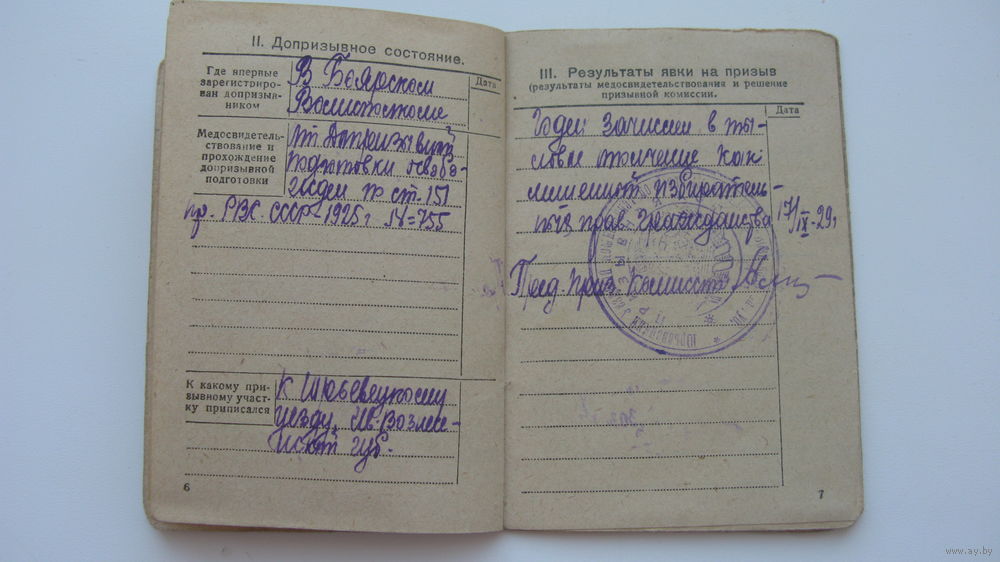 II. Допризывное состояние.
Где впервые
зарегистриро-
ван допризыв-
ником
Дата
В Боярском
Волисполкоме
Медосвидетель-
ствование и
прохождение
допризывной
подготовки
от Допризывной
подготовки освобо-
жден по ст. 151
пр. РВС. СССР 1925 г. №=755
К какому при-
зывному участ-
ку приписался
К Юрьевецкому
уезду, Ив. Вознесе-
нской губ.
6
III. Результаты явки на призыв
(результаты медосвидетельствования и решение
призывной комиссии.
Дата
Годен зачислен в ты-
ловое ополчение как
лишенный избиратель-
ных прав гражданства
17/IX-29 г.
Пред. Приз. Комиссии
7
www.ay.by